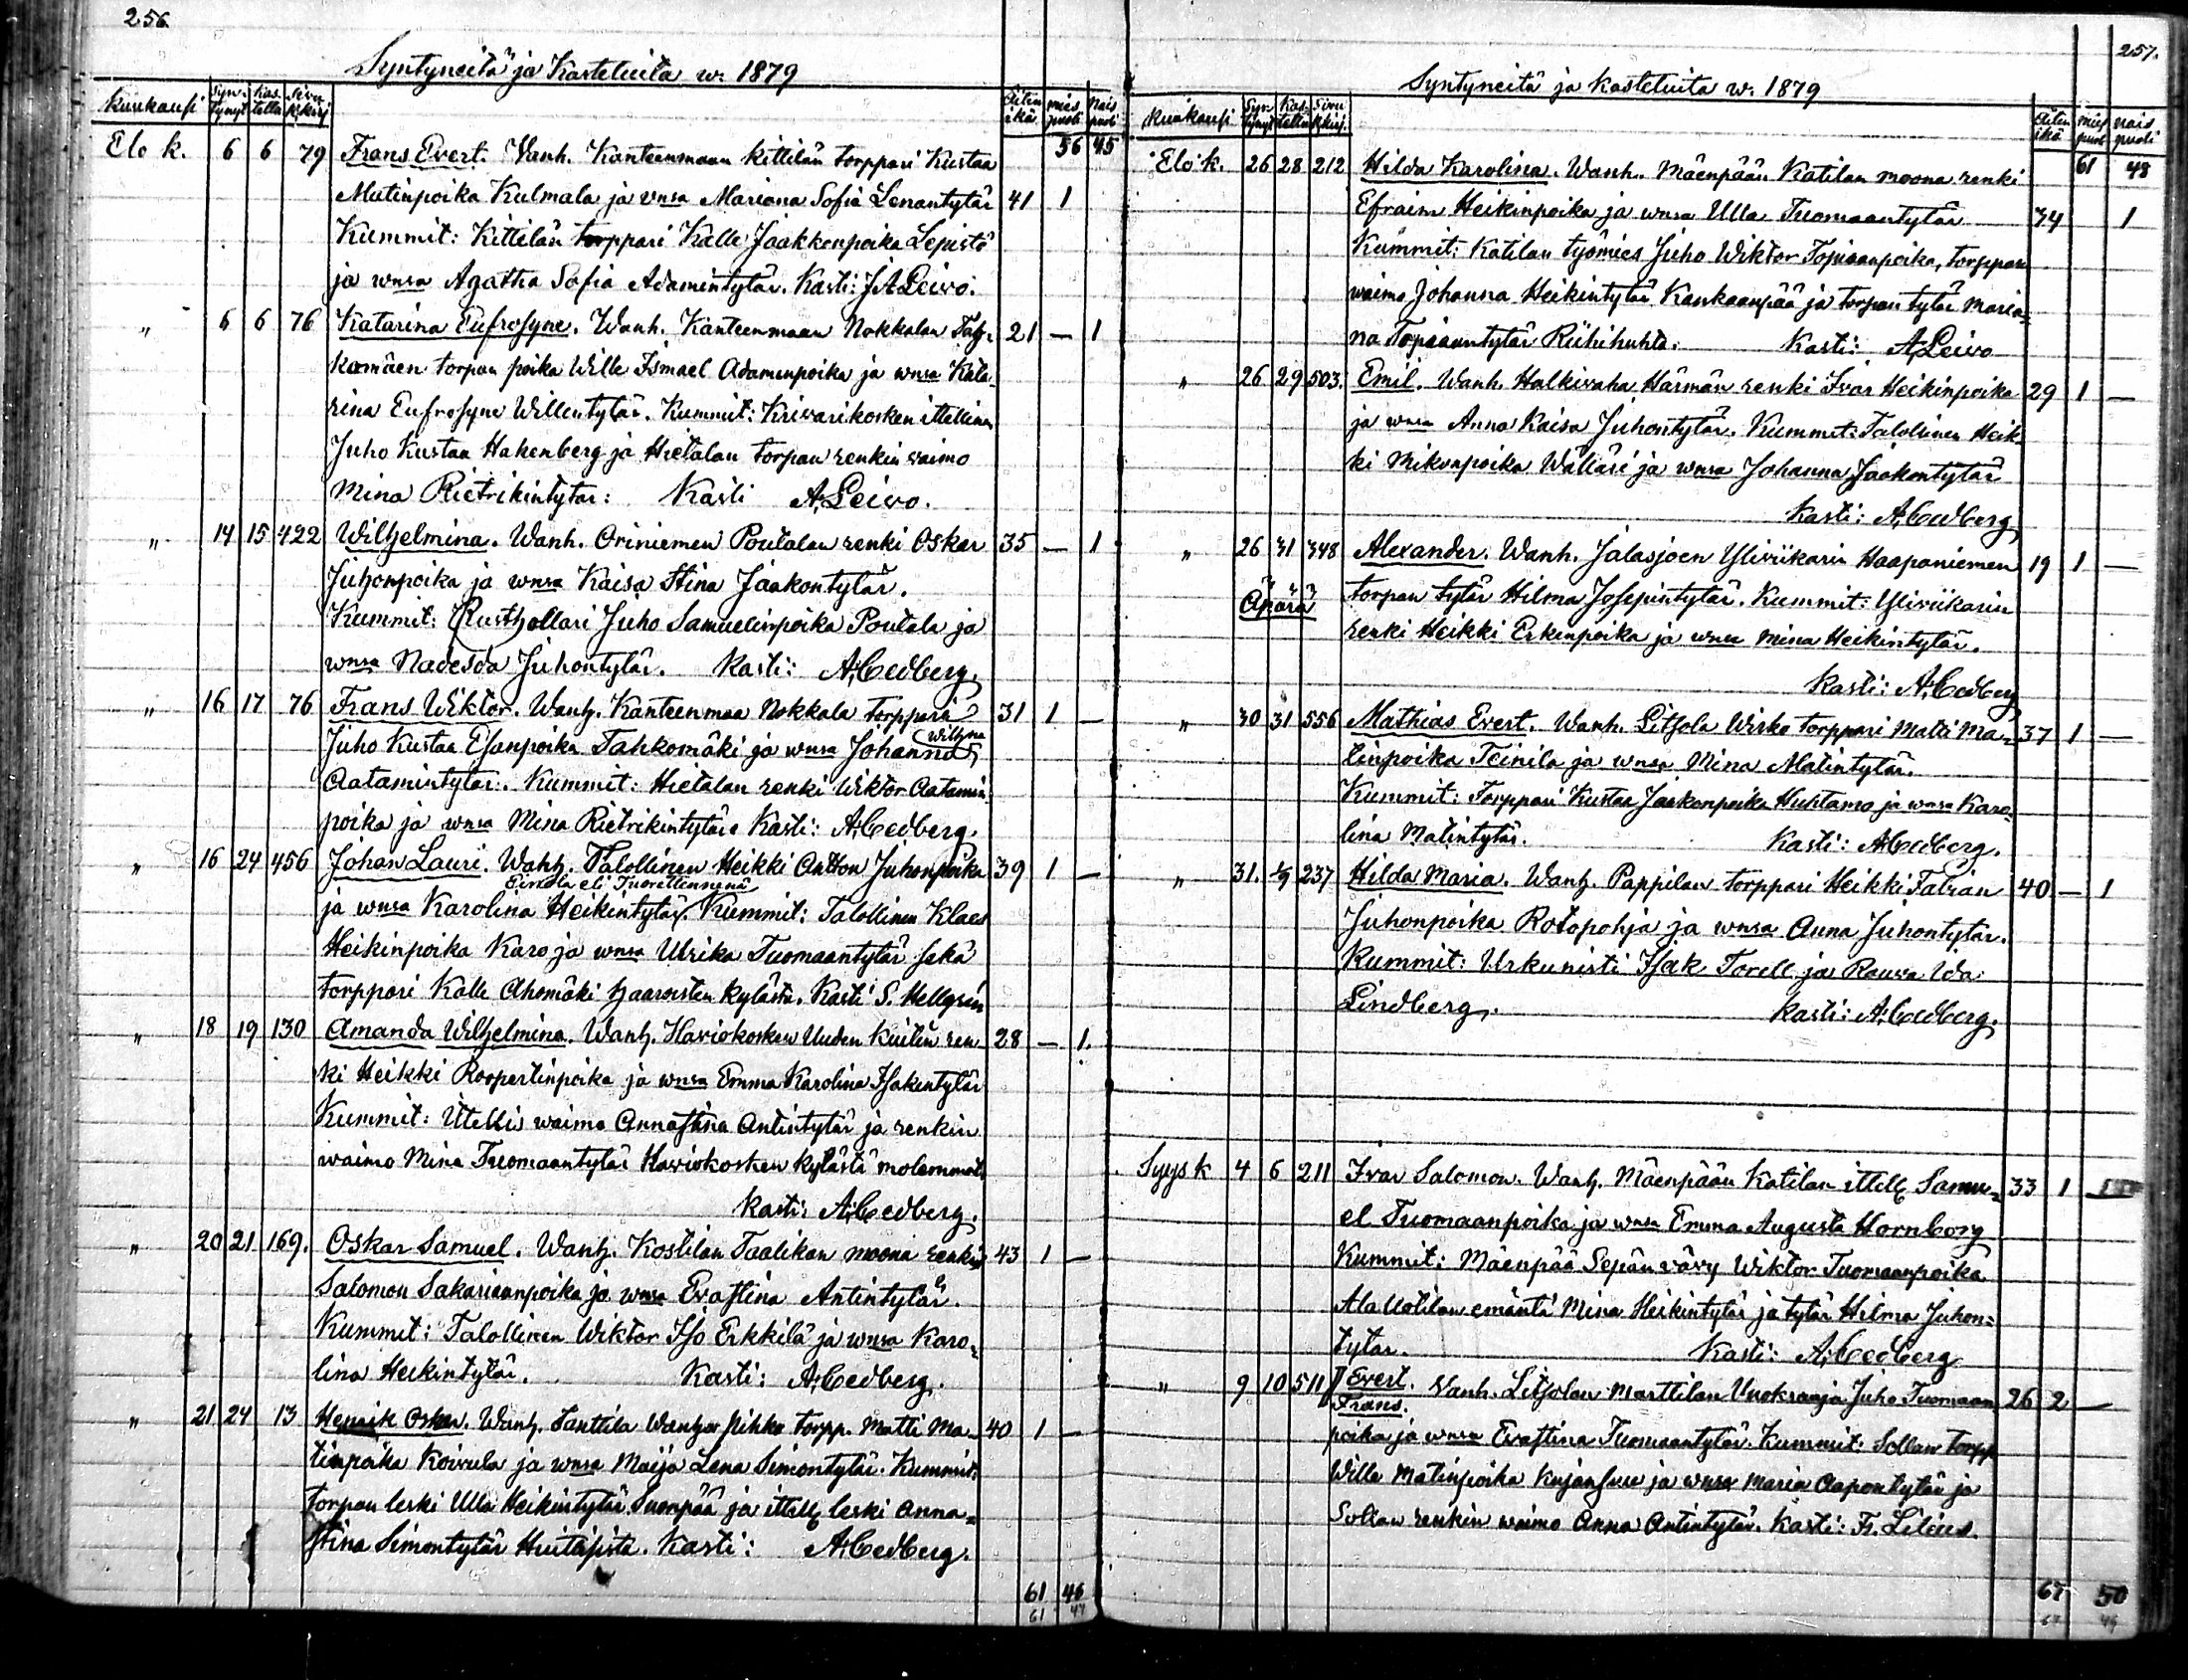 256.
Syntyneitä ja Kastetuita w. 1879
Kuukausi Syntynyt Kastettu Sivu k.kirj Äitin ikä mies puoli Nais puoli
56 45
Elo k. 6 6 79 Frans Evert. Vanh. Kanteenmaan Kittilän torppari Kustaa
Matinpoika Kulmala ja wnsa Mariana Sofia Lenantytär 41 1
Kummit: Kittilän torppari Kalle Jaakkonpoika Lepistö
ja wnsa Agatha Sofia Adamintytär. Kasti: J A Leivo.
" 6 6 76 Katarina Eufrosyne. Wanh. Kanteenmaan Nokkalan Tah- 21 — 1
komäen torpan poika Wille Ismael Adamenpoika ja wnsa Kata-
rina Eufrosyne Willentytär. Kummit: Kriivarikosken ittellinen
Juho Kustaa Hakenberg ja Hietalan torpan renkin vaimo
Mina Rietrikintytär: Kasti A Leivo.
" 14 15 422 Wilhelmina. Wanh. Oriniemen Poutalan renki Oskar 35 — 1
Juhonpoika ja wnsa Kaisa Stina Jaakontytär.
Kummit: Rusthollari Juho Samuelinpoika Poutala ja
wnsa Nadesda Juhontytär. Kasti: A. Cedberg.
" 16 17 76 Frans Wiktor. Wanh. Kanteenmaa Nokkala torppari 31 1 —
Juho Kustaa Esanpoika Tahkomäki ja wnsa Johanna Wilhna
Aatamintytär. Kummit: Hietalan renki Wiktor Aatamin-
poika ja wnsa Mina Rietrikintytär. Kasti: A. Cedberg.
" 16 24 456 Johan Lauri. Wanh. Talollinen Heikki Antton Juhonpoika 39 1 —
Sinola eli Tuorettennenä
ja wnsa Karolina Heikintytär. Kummit: Talollinen Klaes
Heikinpoika Karo ja wnsa Ulrika Tuomaantytär sekä
torppari Kalle Ahomäki Haaroisten kylästä. Kasti S. Hellgren
" 18 19 130 Amanda Wilhelmina. Wanh. Haviokosken Uuden Kuitin ren- 28 — 1.
ki Heikki Roopertinpoika ja wnsa Emma Karolina Isakentytär
Kummit: Ittellis waimo Annastina Antintytär ja renkin
waimo Mina Tuomaantytär Haviokosken kylästä molemmat.
Kasti: A. Cedberg.
" 20 21 169. Oskar Samuel. Wanh. Kostilan Taalikan moona renki 43 1 —
Salomon Sakariaanpoika ja wnsa Evastina Antintytär.
Kummit: Talollinen Wiktor Iso Erkkilä ja wnsa Karo-
lina Heikintytär. Kasti: A. Cedberg.
" 21 24 13 Henrik Oskar. Wanh. Lanttila torpp. Matti Ma- 40 1 —
tinpoika Koivula ja wnsa Maija Lena Simontytär. Kummit:
torpan leski Ulla Heikintytär Suonpää ja ittell. leski Anna-
stina Simontytär. Kasti: A. Cedberg.
61 46
61 47
257.
Syntyneitä ja kastetuita w. 1879
Kuukausi Syntynyt Kastettu Sivu k.kirj. Äitin ikä mies puoli nais puoli
61 48
Elo k. 26 28 212 Hilda Karolina. Wanh. Mäenpään Katilan moona renki
Efraim Heikinpoika ja wnsa Ulla Tuomaantytär 34 1
Kummit: Katilan työmies Juho Wiktor Topiaanpoika, torppari
waimo Johanna Heikintytär Kankaanpää ja torpan tytär Maria-
na Topiaantytär Riihihuhta. Kasti: A Leivo
" 26 29 503. Emil. Wanh. Halkivaha Härmän renki Ivar Heikinpoika 29 1 —
ja wnsa Anna Kaisa Juhontytär. Kummit: Talollinen Heik-
ki Mikonpoika Wälläri ja wnsa Johanna Jaakontytär
Kasti: A. Cedberg
" 26 31 348 Alexander. Wanh. Jalasjoen Yliviikarin Haapaniemen 19 1 —
Äpärä torpan tytär Hilma Josepintytär. Kummit: Yliviikarin
renki Heikki Erkinpoika ja wnsa Mina Heikintytär.
Kasti: A. Cedberg
" 30 31 556 Mathias Evert. Wanh. Litsola Wirko torppari Matti Ma- 37 1 —
tinpoika Teinila ja wnsa Mina Matintytär.
Kummit: Torppari Kustaa Jaakonpoika Huhtamo ja wnsa Karo-
lina Matintytär. Kasti: A. Cedberg.
" 31. 1/9 237 Hilda Maria. Wanh. Pappilan torppari Heikki Fabian 40 — 1
Juhonpoika Rotopohja ja wnsa Anna Juhontytär.
Kummit: Urkunisti Isak Torell ja Rouva Ida
Lindberg. Kasti: A. Cedberg.
Syys k 4 6 211 Ivar Salomon. Wanh. Mäenpään Katilan ittell. Samu- 33 1
el Tuomaanpoika ja wnsa Emma Augusta Hornborg
Kummit: Mäenpää Sepän vävy Wiktor Tuomaanpoika
Alallotilan emäntä Mina Heikintytär ja tytär Hilma Juhon-
tytär. Kasti: A. Cedberg
" 9 10 511 Evert. Vanh. Litsolan Marttilan Vuokraaja Juho Tuomaan- 26 2 —
Frans.
poika ja wnsa Evastina Tuomaantytär. Kummit: Sollan torpp
Wille Matinpoika Kujansuu ja wnsa Maria Aapontytär ja
Sollan renkin waimo Anna Antintytär. Kasti: Fr. Lilius.
67 50
67 49